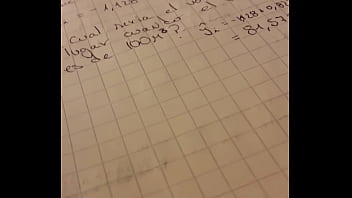 = -1,128
cual seria el
lugar cuando el
es de 100 m³? ŷᵢ = -1,128 + 0,82
= 81,57